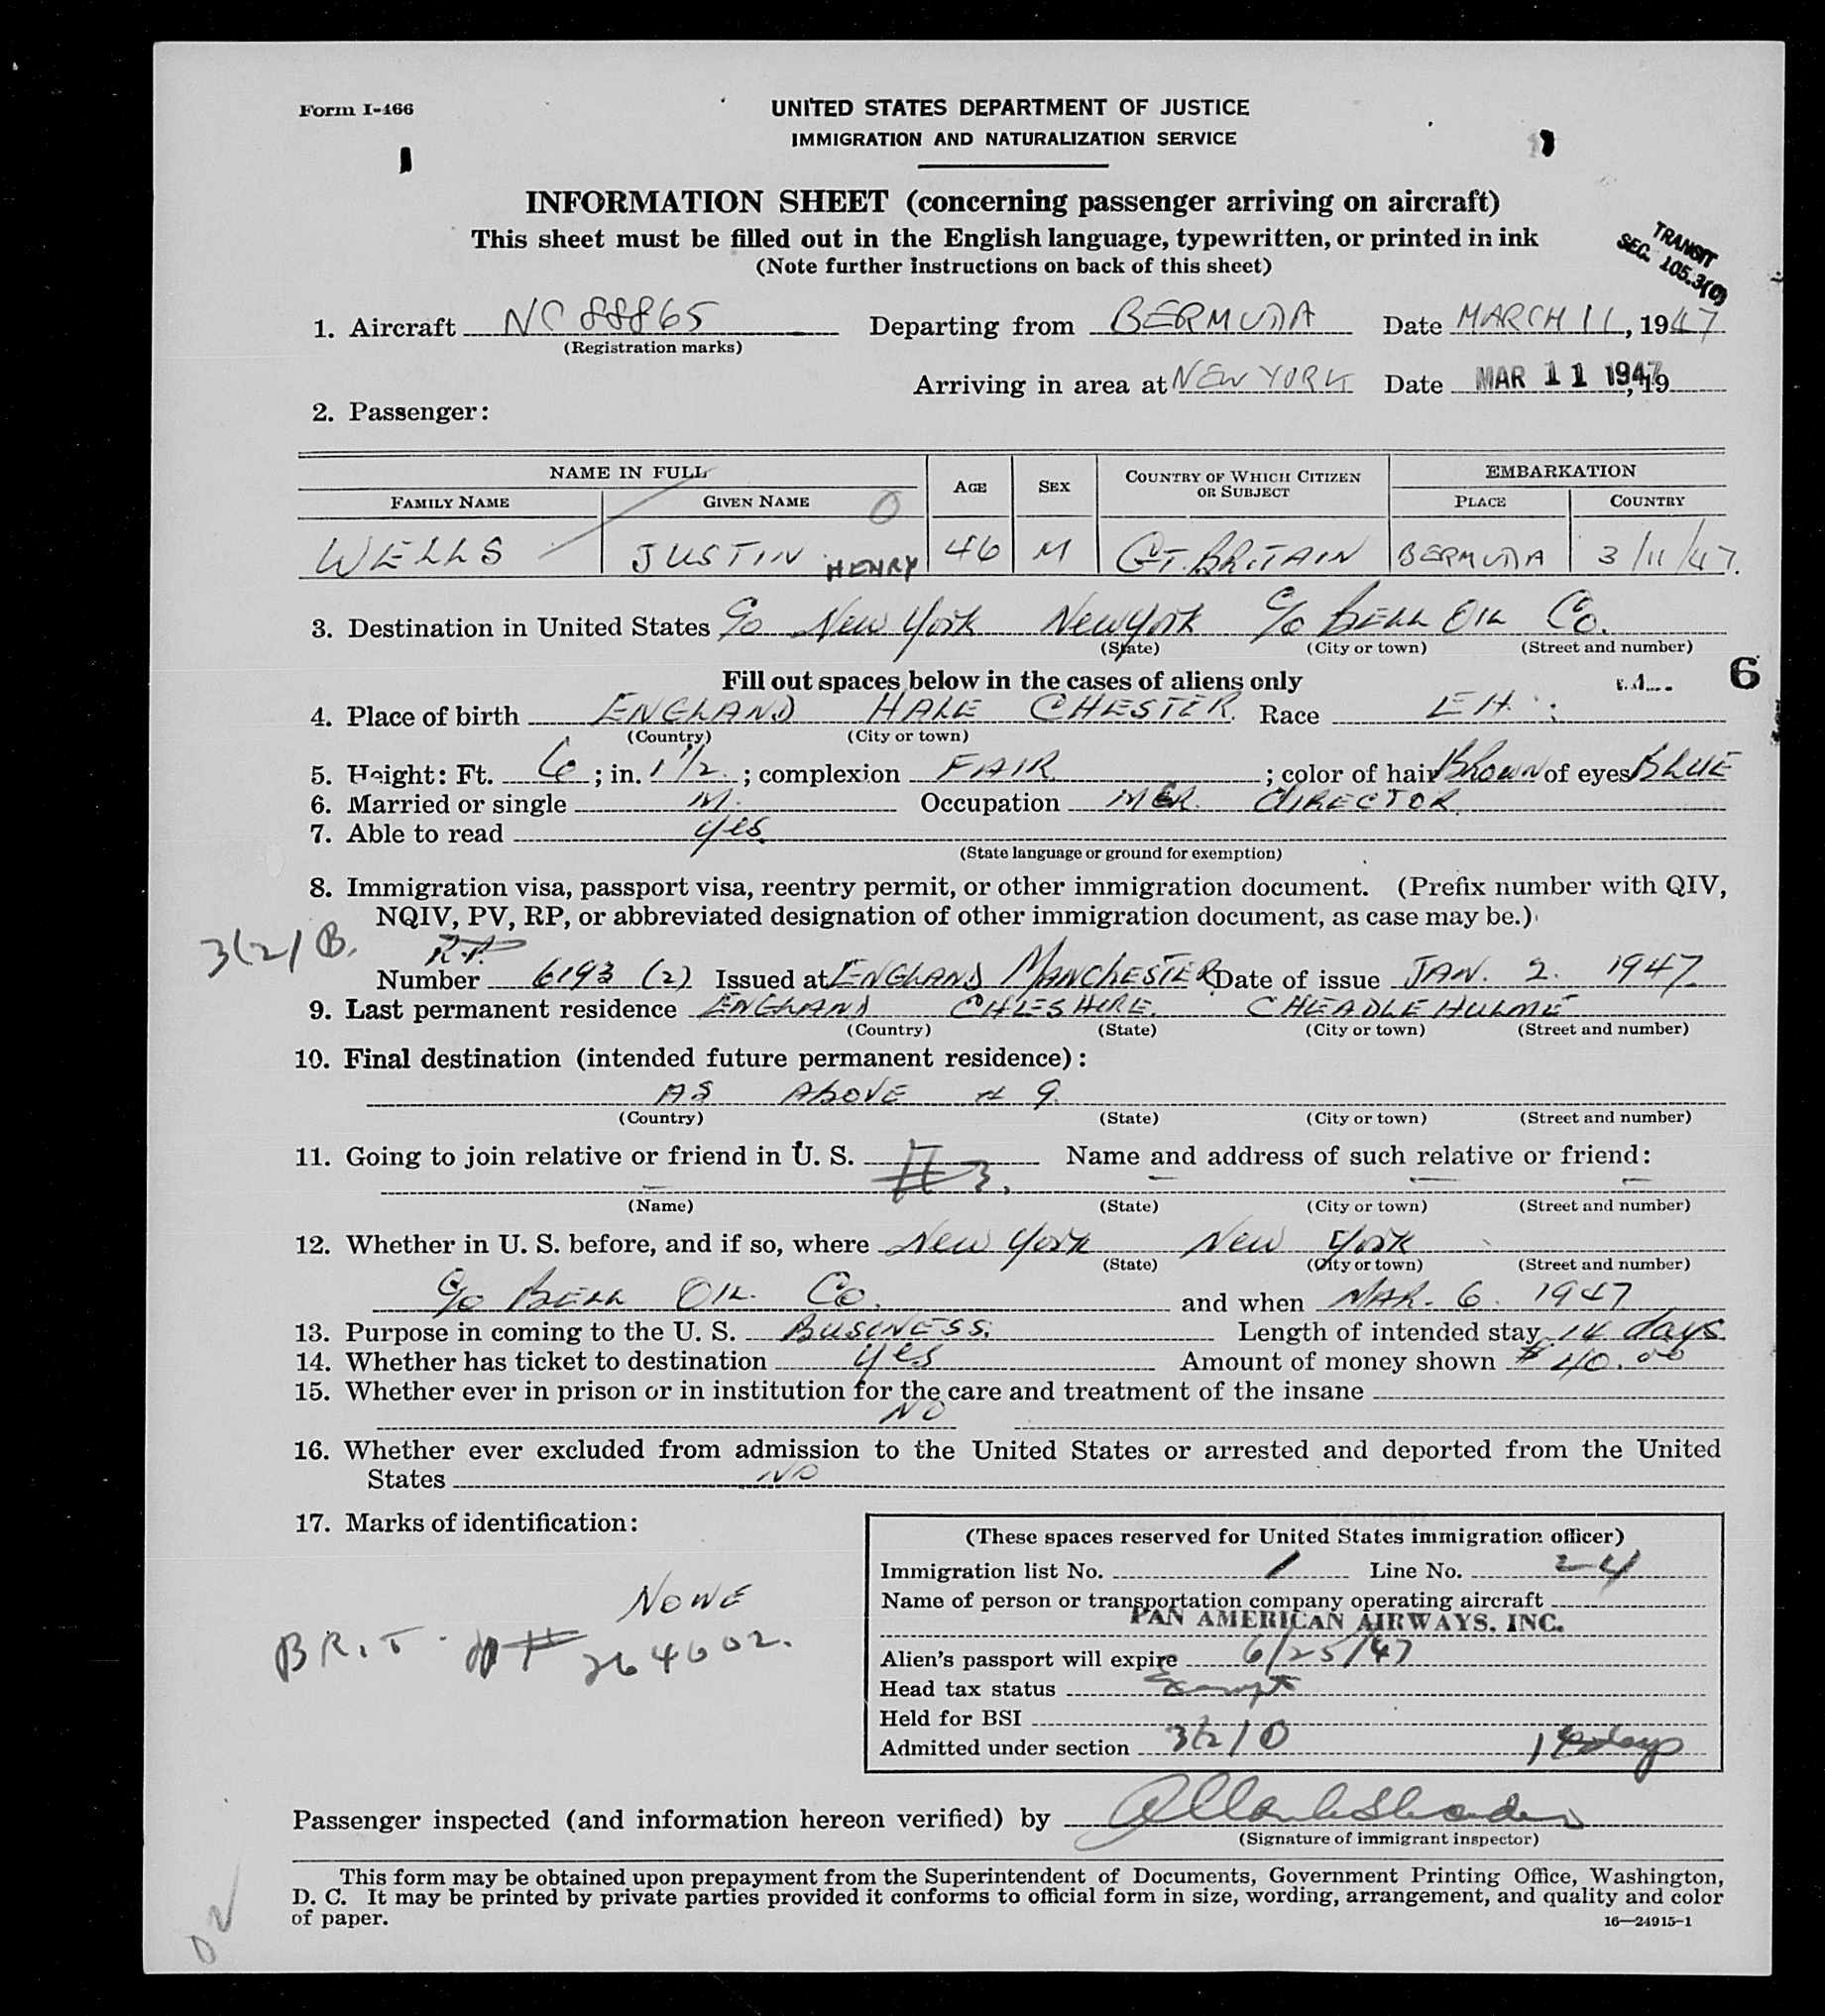 Form I-466
UNITED STATES DEPARTMENT OF JUSTICE
IMMIGRATION AND NATURALIZATION SERVICE
INFORMATION SHEET (concerning passenger arriving on aircraft)
This sheet must be filled out in the English language, typewritten, or printed in ink
(Note further instructions on back of this sheet)
TRANSIT
SEC. 105.3(c)
1. Aircraft NC 88865 Departing from BERMUDA Date MARCH 11, 1947
(Registration marks)
Arriving in area at NEW YORK Date MAR 11 1947, 19
2. Passenger:
NAME IN FULL AGE SEX COUNTRY OF WHICH CITIZEN OR SUBJECT EMBARKATION
FAMILY NAME GIVEN NAME PLACE COUNTRY
WELLS JUSTIN HENRY 46 M GT. BRITAIN BERMUDA 3/11/47.
3. Destination in United States c/o New York New York c/o BELL OIL Co.
(State) (City or town) (Street and number)
Fill out spaces below in the cases of aliens only 6
4. Place of birth ENGLAND HALE CHESTER. Race
(Country) (City or town)
5. Height: Ft. 6; in. 1 1/2; complexion FAIR; color of hair BROWN of eyes BLUE
6. Married or single M. Occupation DIRECTOR
7. Able to read yes
(State language or ground for exemption)
8. Immigration visa, passport visa, reentry permit, or other immigration document. (Prefix number with QIV,
NQIV, PV, RP, or abbreviated designation of other immigration document, as case may be.)
3(2) B.
Number 6193 (2) Issued at ENGLAND MANCHESTER Date of issue JAN. 2. 1947.
9. Last permanent residence ENGLAND CHESHIRE. CHEADLE HULME
(Country) (State) (City or town) (Street and number)
10. Final destination (intended future permanent residence):
AS ABOVE # 9.
(Country) (State) (City or town) (Street and number)
11. Going to join relative or friend in U. S. #3. Name and address of such relative or friend:
(Name) (State) (City or town) (Street and number)
12. Whether in U. S. before, and if so, where New York New York
(State) (City or town) (Street and number)
c/o BELL OIL Co. and when MAR. 6. 1947
13. Purpose in coming to the U. S. BUSINESS. Length of intended stay 14 days.
14. Whether has ticket to destination yes Amount of money shown $40.00
15. Whether ever in prison or in institution for the care and treatment of the insane
NO
16. Whether ever excluded from admission to the United States or arrested and deported from the United
States NO
17. Marks of identification:
NONE
BRIT. 264602.
(These spaces reserved for United States immigration officer)
Immigration list No. 1 Line No. 24
Name of person or transportation company operating aircraft
PAN AMERICAN AIRWAYS, INC.
Alien's passport will expire 6/25/47
Head tax status Exempt
Held for BSI
Admitted under section 3(2) 14 days
Passenger inspected (and information hereon verified) by
(Signature of immigrant inspector)
This form may be obtained upon prepayment from the Superintendent of Documents, Government Printing Office, Washington,
D. C. It may be printed by private parties provided it conforms to official form in size, wording, arrangement, and quality and color
of paper.
16—24915-1